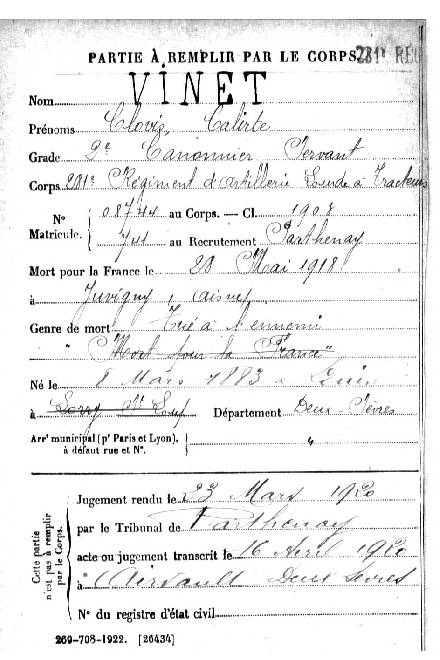 PARTIE À REMPLIR PAR LE CORPS. 281e REG
Nom VINET
Prénoms Clovis, Calixte
Grade 2e Canonnier Servant
Corps 281e Régiment d'artillerie Lourde à Tracteurs
No Matricule. { 08744 au Corps. — Cl. 1908
741 au Recrutement Parthenay
Mort pour la France le 28 Mai 1918
à Juvigny, Aisne
Genre de mort Tué à l'ennemi
" "Mort pour la France"
Né le 8 Mars 1883 à
à St Loup Département Deux-Sèvres
Arrt municipal (pr Paris et Lyon), à défaut rue et No. { "
Cette partie n'est pas à remplir par le Corps.
Jugement rendu le 23 Mars 1920
par le Tribunal de Parthenay
acte ou jugement transcrit le 16 Avril 1920
à Airvault Deux Sèvres
No du registre d'état civil
269-708-1922. [26434]